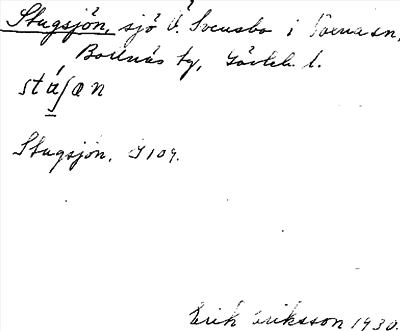 Stugsjön, sjö Ö. Svensbo i Voxna sn,
Bollnäs tg, Gävleb. l.
Stugsjön. J 109.
Erik Eriksson 1930.